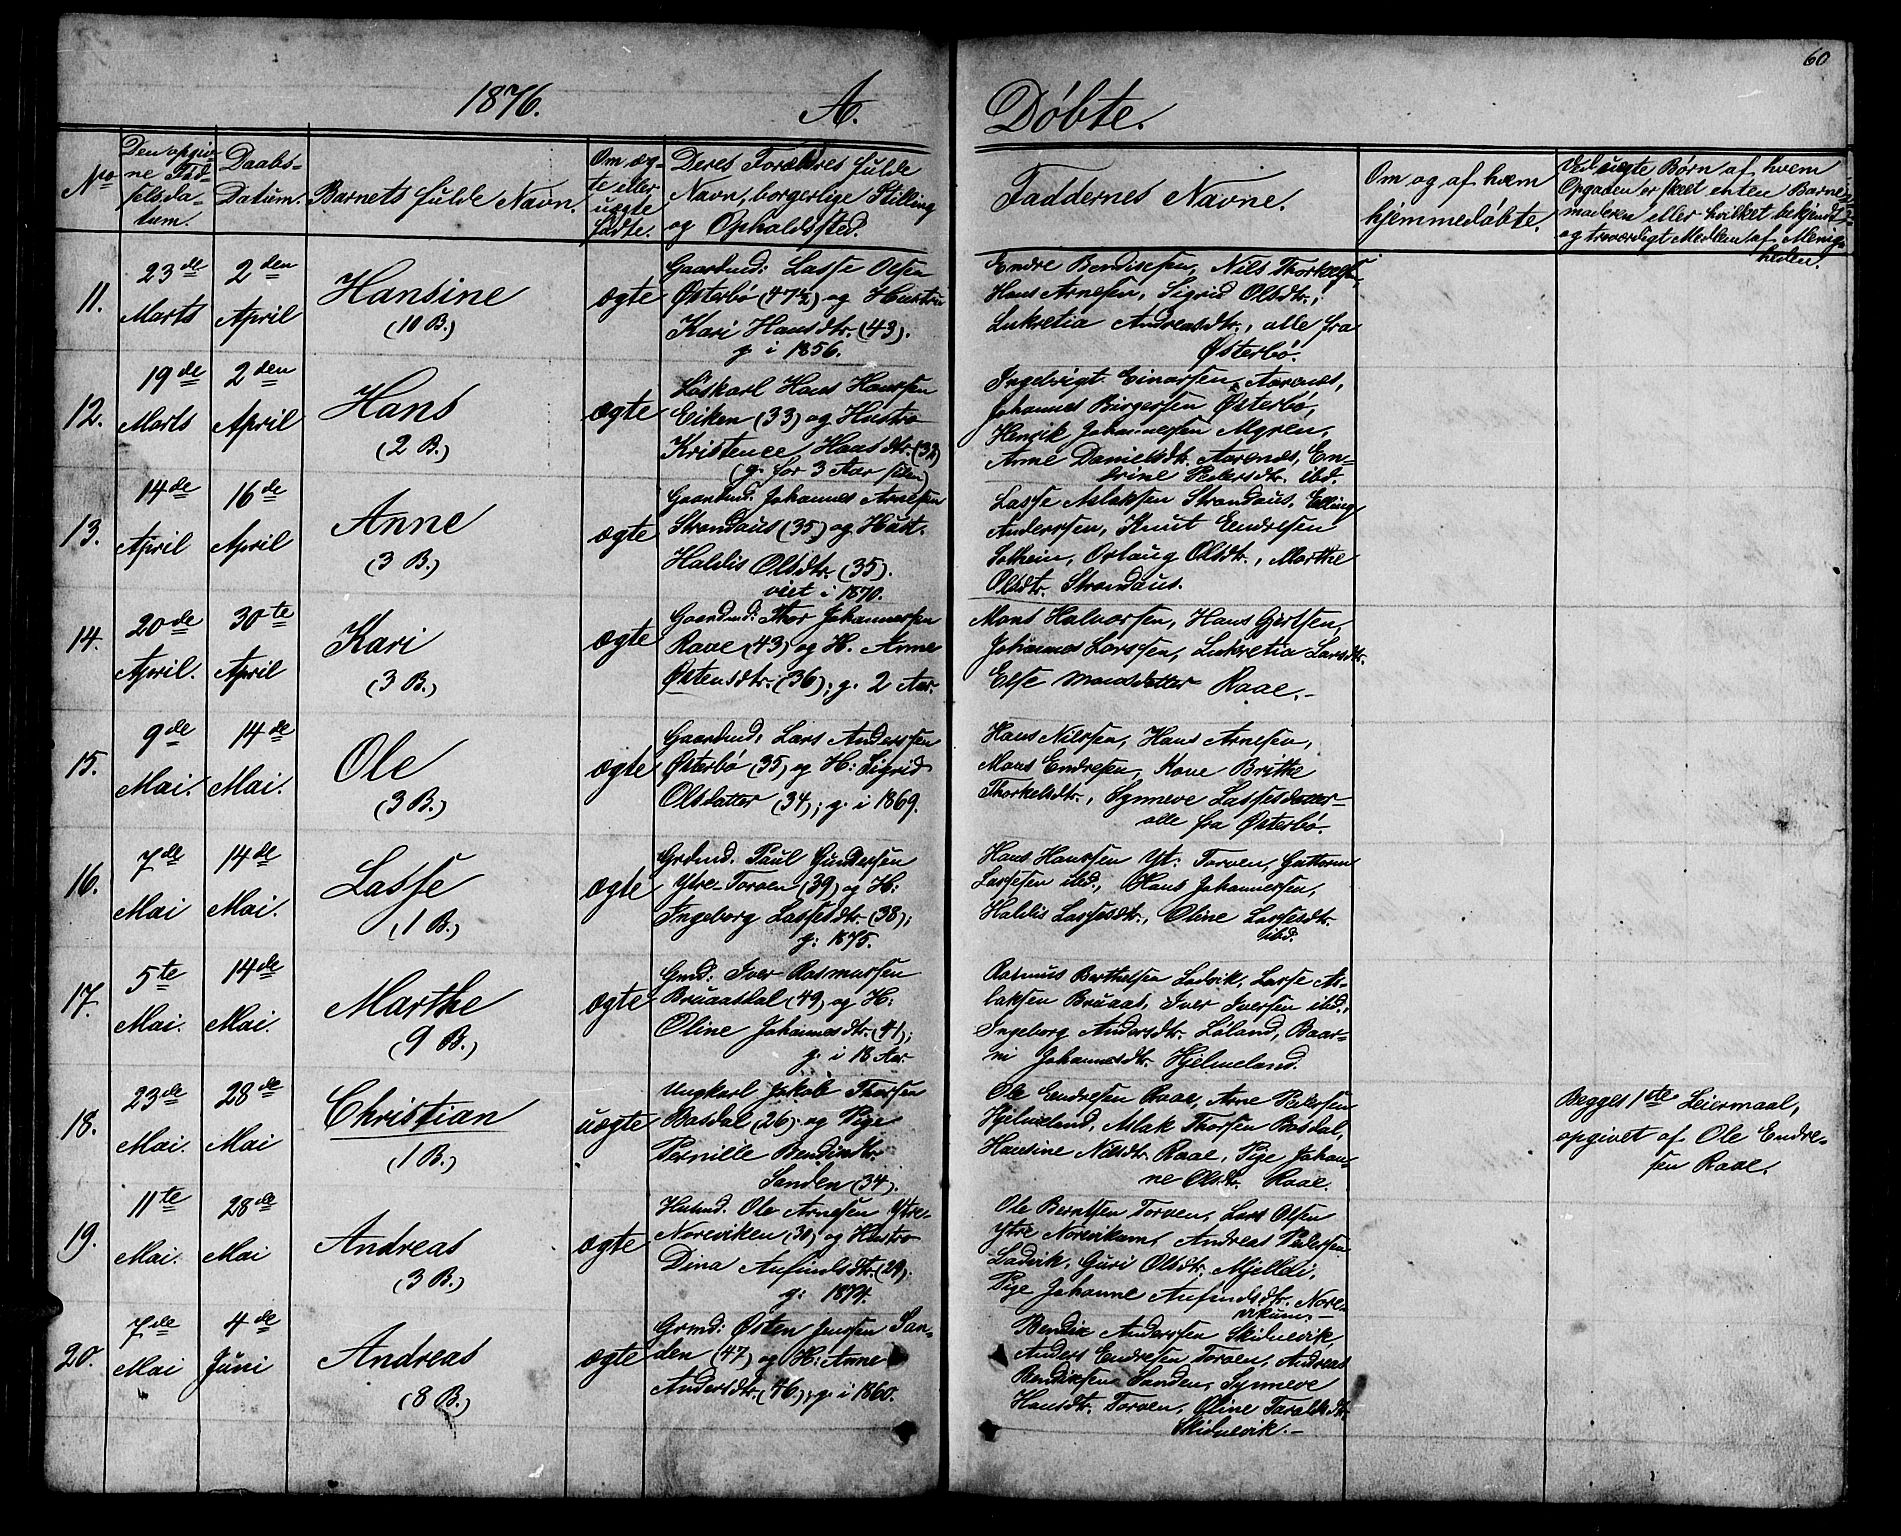 60
1876. A. Døbte.
No
Den opgiv-
ne Fød-
selsda-
tum.
Daabs-
Datum.
Barnets fulde Navn.
Om æg-
te eller
uægte
fødte.
Deres Forældres fulde
Navn, borgerlige Stilling
og Opholdssted.
Faddernes Navne.
Om og af hvem
hjemmedøbte.
Ved uægte Børn af hvem
Opgaven er skeet enten Barne-
moderen eller hvilket bekjendt
og troværdigt Medlem af Menig-
heden.
11.
23de
Marts
2den
April
Hansine
(10 B.)
ægte
Gaardmd: Lasse Olsen
Østerbø (47½) og Hustru
Kari Hansdtr. (43).
g. i 1856.
Endre Bendiksen, Nils Thorkels.
Hans Arnesen, Sigrid Olsdtr.,
Lukretia Andreasdtr., alle fra
Østerbø.
12.
19de
Marts
2den
April
Hans
(2 B.)
ægte
Løskarl Hans Hanssen
Eiken (33) og Hustro
Kristence Hansdtr. (32)
(g. for 3 Aar siden)
Ingebrigt Einarsen Aarenes,
Johannes Birgersen Østerbø,
Henrik Johannesen Myren,
Anne Danielsdtr. Aarenes, En-
drine Pedersdtr. ibd.
13.
14de
April
16de
April
Anne
(3 B.)
ægte
Gaardmd: Johannes Arnesen
Strandaus (35) og Hust.
Haldis Olsdtr. (35).
viet i 1870.
Lasse Aslaksen Strandaus, Elling
Anderssen, Knut Endresen
Solheim, Orlaug Olsdtr., Marthe
Olsdtr. Strandaus.
14.
20de
April.
30te
April
Kari
(3 B.)
ægte
Gaardmd: Thor Johannessen
Raae (43) og H. Anne
Østensdtr. (36); g. 2 Aar.
Mons Halvorsen, Hans Gjertsen,
Johannes Larssen, Lukretia Larsdtr.
Else Monsdatter Raae.-
15.
9de
Mai.
14de
Mai.
Ole
(3 B.)
ægte
Gaardmd: Lars Anderssen
Østerbø (35) og H: Sigrid
Olsdatter (34); g. i 1869.
Hans Nilssen, Hans Arnesen,
Mons Endresen, Kone Brithe
Thorkelsdtr., Synneve Lassesdatter-
alle fra Østerbø.
16.
7de
Mai
14de
Mai.
Lasse
(1 B.)
ægte
Grdmd. Paul Gundersen
Ytre Torven (39) og H:
Ingeborg Lassesdtr. (38);
g: 1875.
Hans Hanssen Yt: Torven, Guttorm
Lassesen ibd., Hans Johannessen,
Haldis Lassesdtr., Oline Lassesdtr.
ibd.
17.
5te
Mai.
14de
Mai.
Marthe
(9 B.)
ægte
Gmd: Iver Rasmussen
Bruaasdal (49) og H:
Oline Johannesdtr. (41);
g. i 18 Aar
Rasmus Berthelsen Ladvik, Lasse As-
laksen Bruaas, Iver Iversen ibd.,
Ingeborg Andersdtr. Løland, Baar-
ni Johannesdtr. Hjelmeland.
18.
23de
Mai.
28de
Mai
Christian
(1 B.)
uægte
Ungkarl Jakob Thorsen
Bosdal (26) og Pige
Pernille Bendiksdtr.
Sanden (34).
Ole Endresen Raae, Arne Pedersen
Hjelmeland, Aslak Thorsen Bosdal,
Hansine Nilsdtr. Raae, Pige Johan-
ne Olsdtr. Raae.
Begges 1ste Leiermaal,
opgivet af Ole Endre-
sen Raae.
19.
11te
Mai.
28de
Mai
Andreas
(3 B.)
ægte
Husmd: Ole Arnesen Ytre-
Noreviken (30) og Hustro
Dina Anfindsdtr. (29).
g: 1874.
Ole Berntsen Torven, Lars Olsen
Ytre Norevikum, Andreas Pedersen
Ladvik, Guri Olsdtr. Mjelldi,
Pige Johanne Anfindsdtr. Nore-
vikum.-
20.
7de
Mai
4de
Juni
Andreas
(8 B.)
ægte
Grmd: Østen Jenssen San-
den (47) og H: Anne
Andersdtr. (46); g. i 1860.
Bendix Anderssen Skidnevik,
Anders Endresen Torven, Andreas
Bendiksen Sanden, Synneve
Hansdtr. Torven, Oline Taraldsdtr.
Skidnevik.-